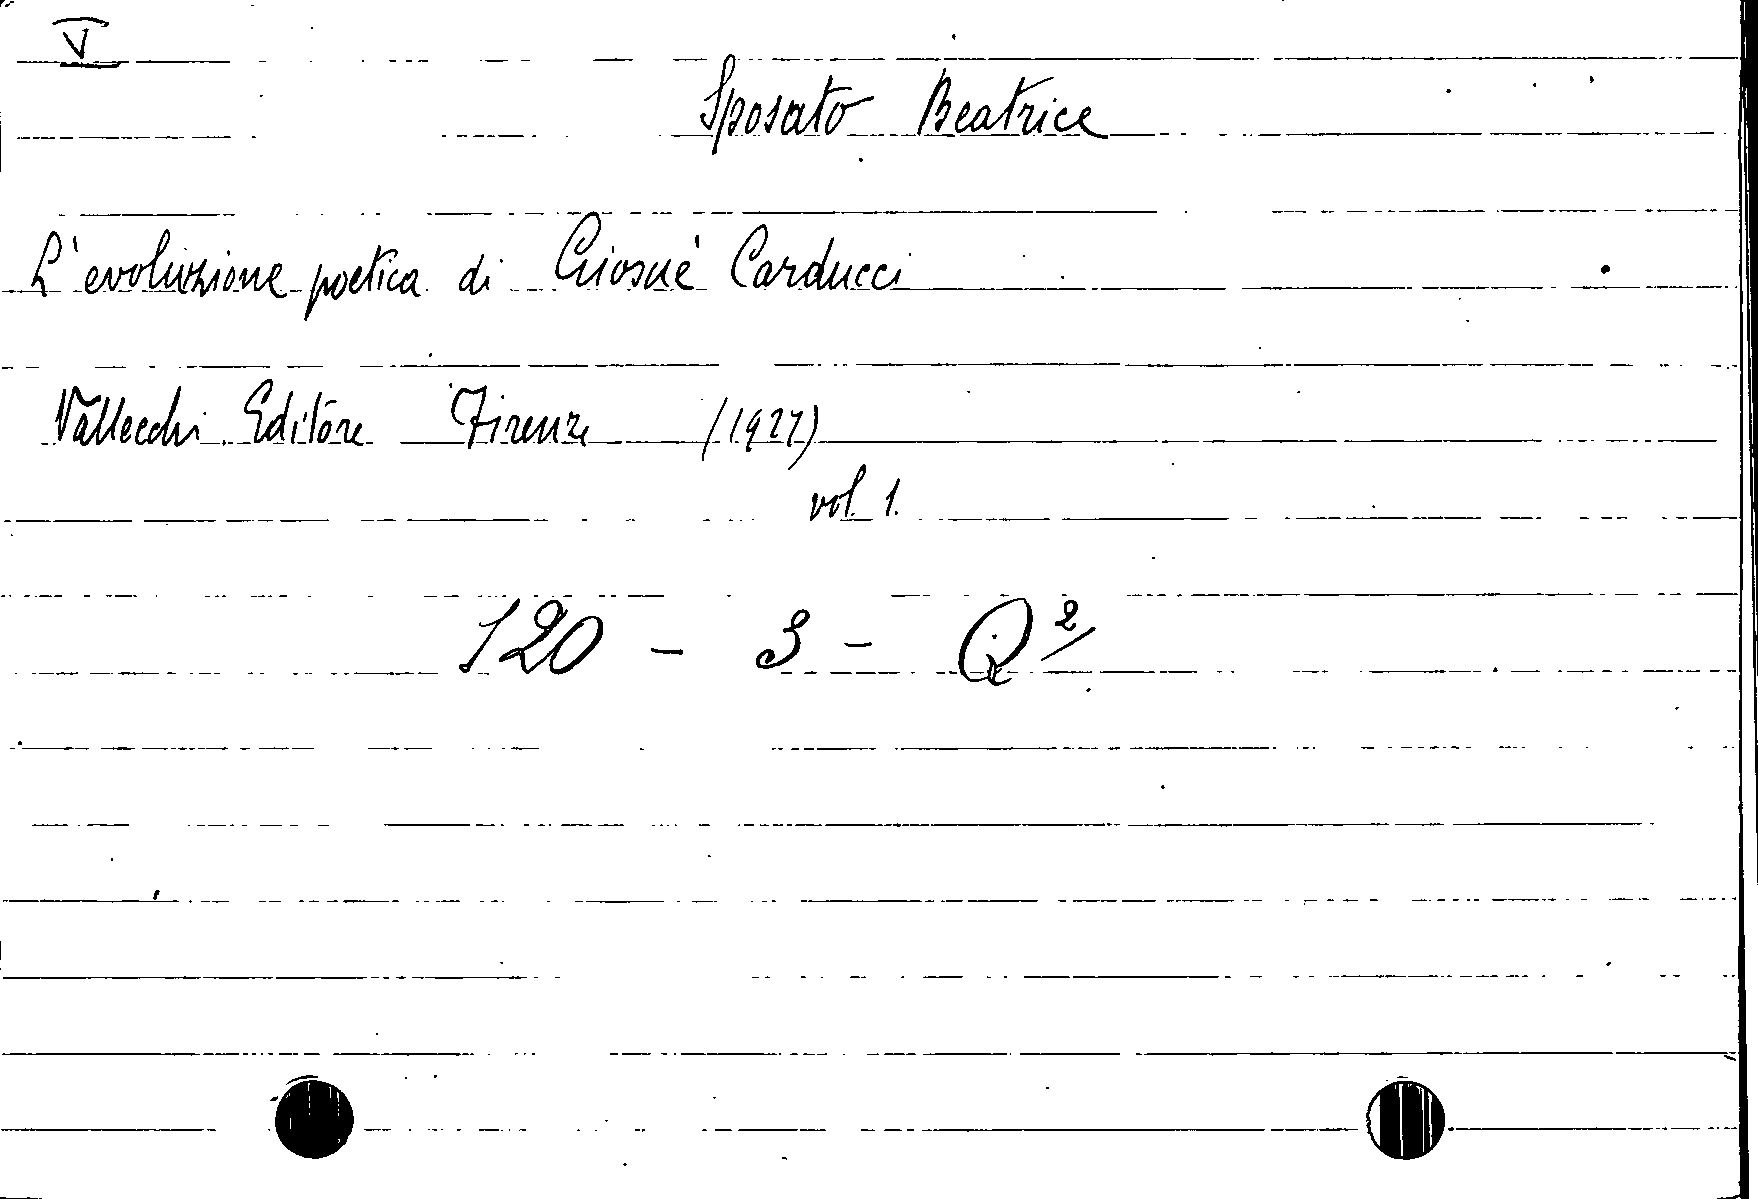 V
Sposato Beatrice
L'evoluzione poetica di Giosuè Carducci
Vallecchi Editore Firenze (1927)
vol. 1.
120 - 3 - Q 2/